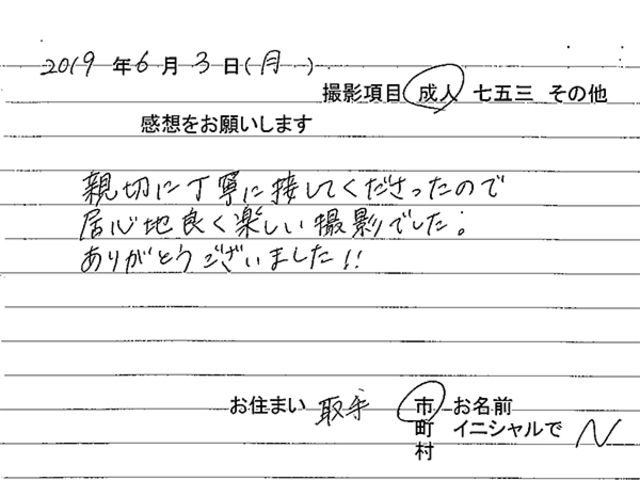 2019 年 6 月 3 日 (月)
撮影項目 成人 七五三 その他
感想をお願いします
親切に丁寧に接してくださったので
居心地良く楽しい撮影でした。
ありがとうございました!!
お住まい 取手 市 お名前
町 イニシャルで N
村